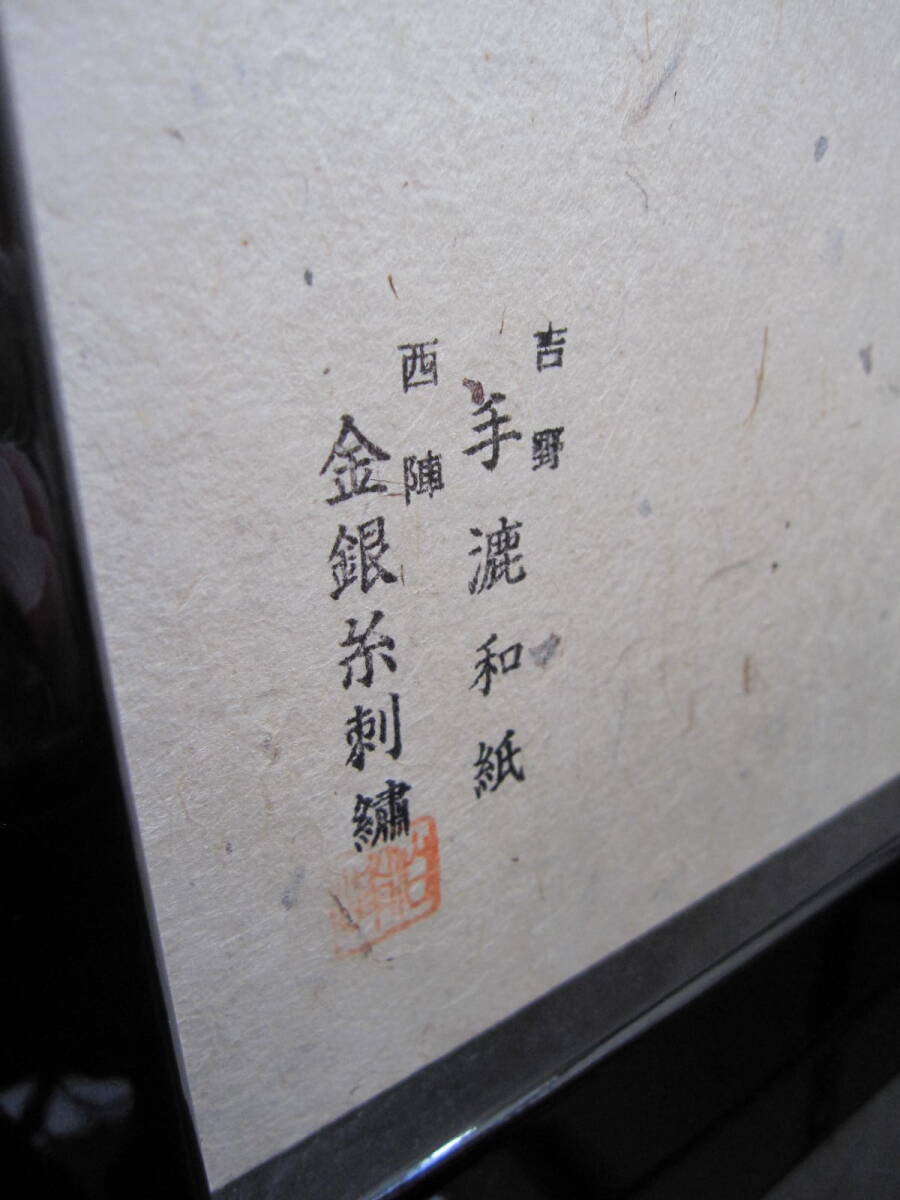 吉野
手漉和紙
西陣
金銀糸刺繡